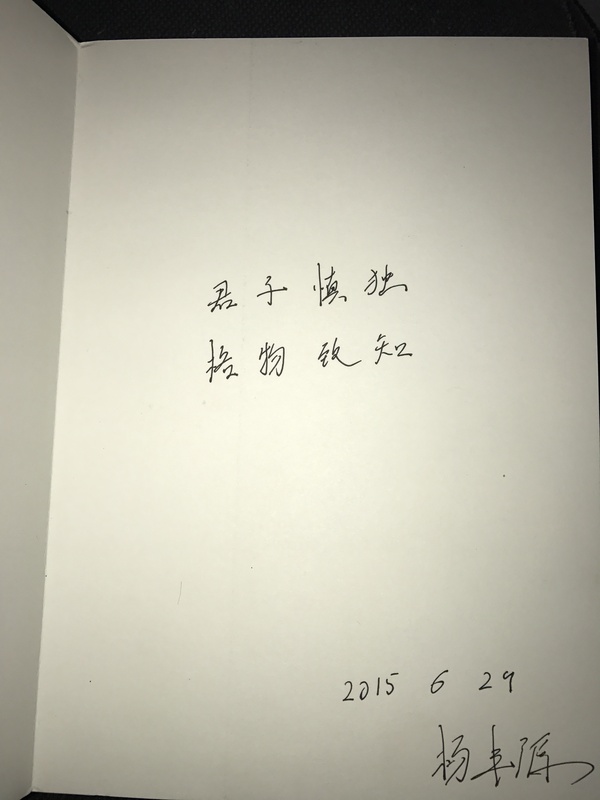 君子慎独
格物致知
2015 6 29
杨